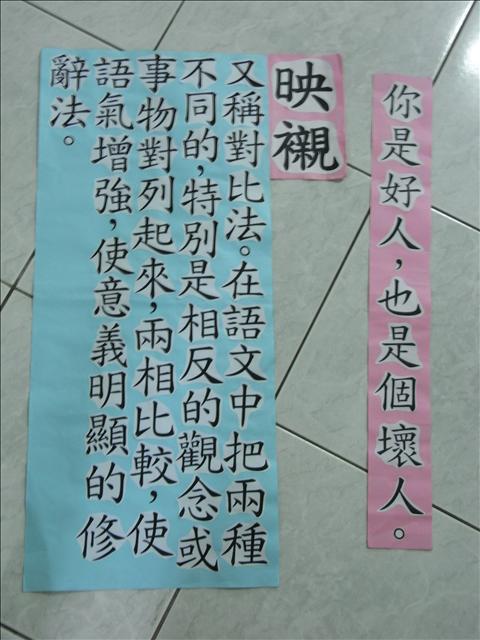 你是好人，也是個壞人。
映襯
又稱對比法。在語文中把兩種
不同的，特別是相反的觀念或
事物對列起來，兩相比較，使
語氣增強，使意義明顯的修
辭法。